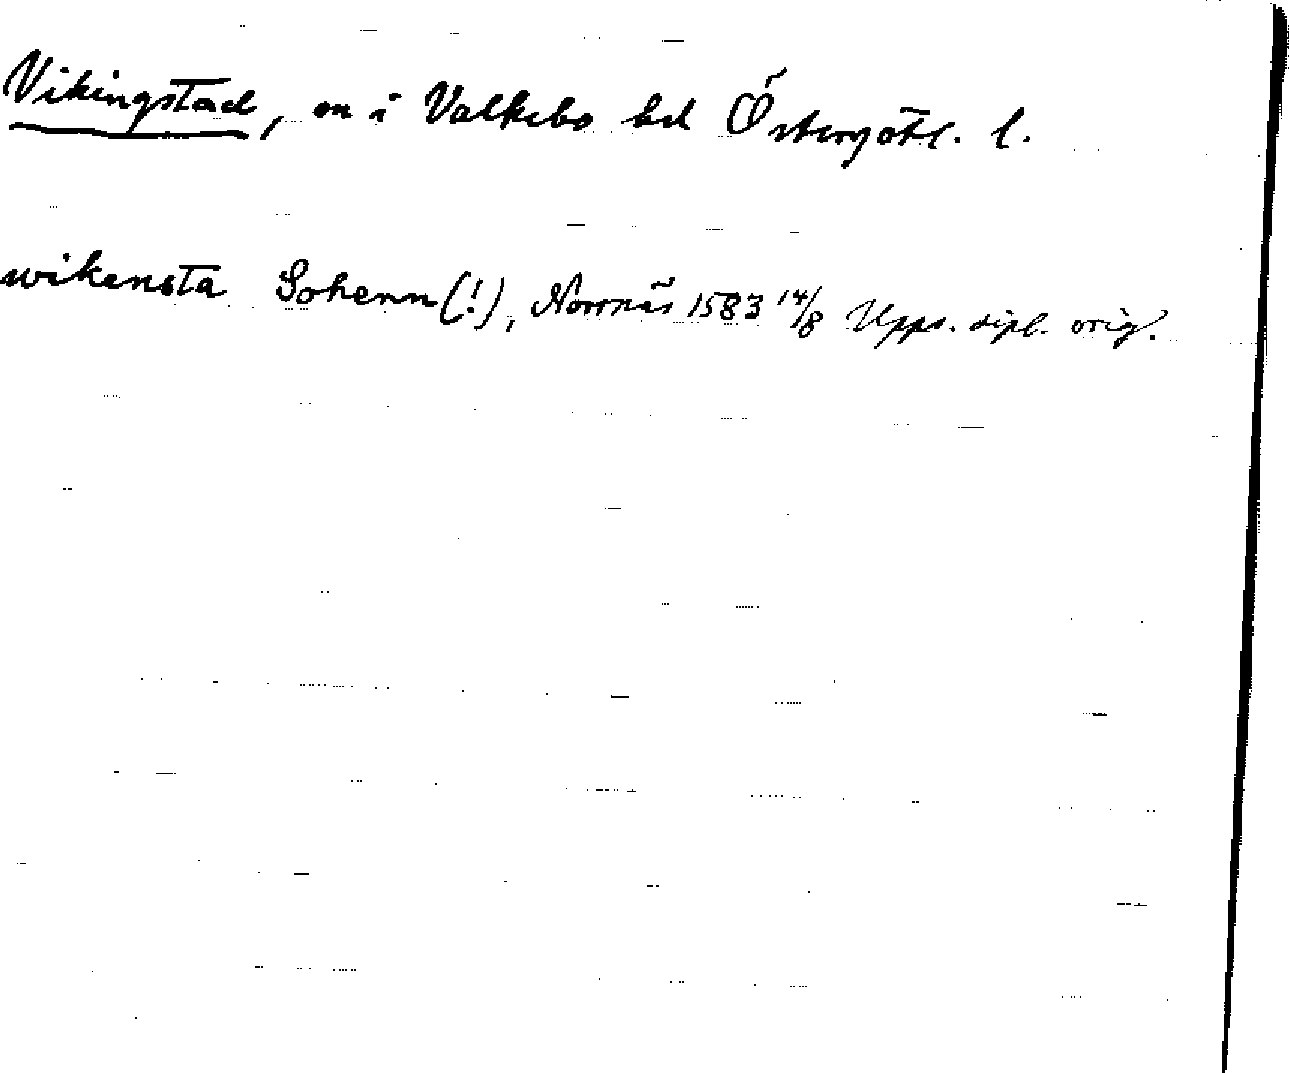 Vikingstad, sn i Valkebo hd Östergötl. l.
wikensta Sohenn (!), Norrnäs 1583 14/8 Upps. dipl. orig.